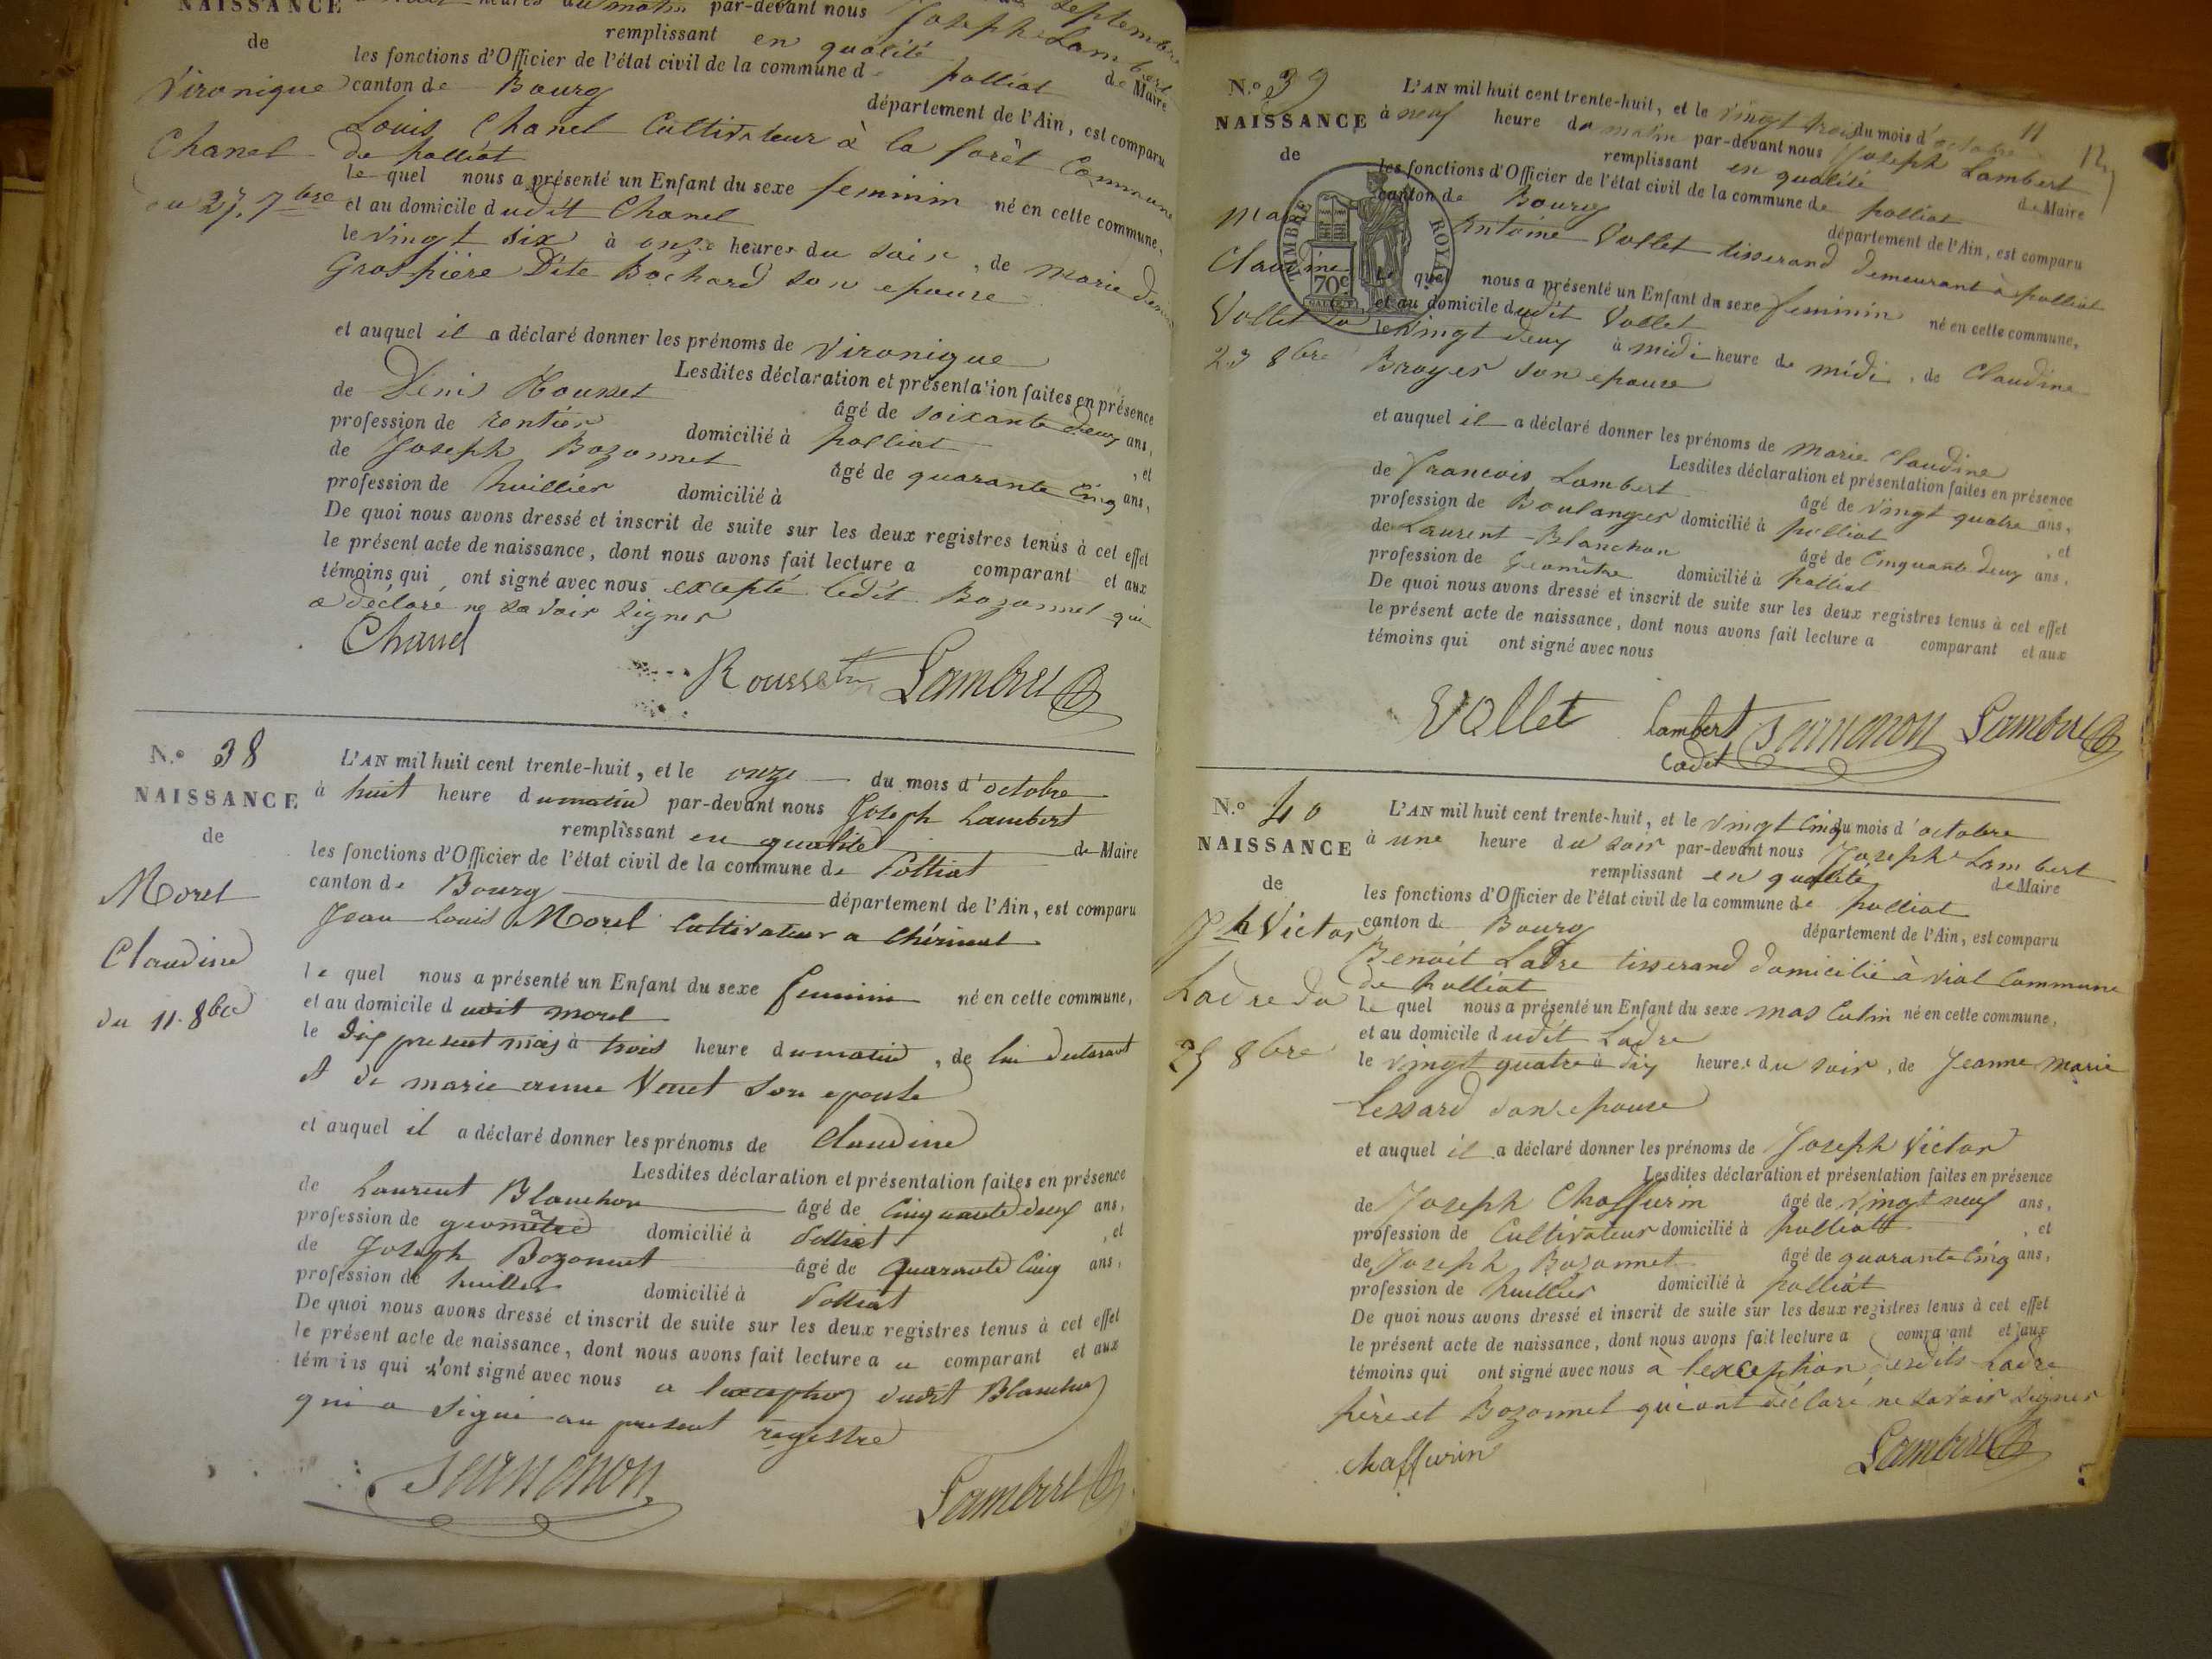 NAISSANCE
heures du matin par-devant nous Joseph Lambert
de
remplissant en qualité de Maire
les fonctions d'Officier de l'état civil de la commune de polliat
Vironique
canton de Bourg département de l'Ain, est comparu
Louis Chanel Cultivateur à la forêt Commune
Chanel
de polliat
le quel nous a présenté un Enfant du sexe feminin né en cette commune,
du 27 7bre
et au domicile dudit Chanel
le vingt six à onze heures du soir, de marie
Grospiere Dite Bochard son epouse
et auquel il a déclaré donner les prénoms de Vironique
Lesdites déclaration et présentation faites en présence
de Denis Rousset âgé de soixante deux ans,
profession de rentier domicilié à polliat , et
de Joseph Bozonnet âgé de quarante Cinq ans,
profession de huillier domicilié à
De quoi nous avons dressé et inscrit de suite sur les deux registres tenus à cet effet
le présent acte de naissance, dont nous avons fait lecture a comparant et aux
témoins qui ont signé avec nous excepté ledit Bozonnet qui
a déclaré ne savoir signer
Chanel
Rousset Lambert
N.º 38
L'AN mil huit cent trente-huit, et le onze du mois d'octobre
NAISSANCE
à huit heure du matin par-devant nous Joseph Lambert
de
remplissant en qualité de Maire
les fonctions d'Officier de l'état civil de la commune de Polliat
canton de Bourg département de l'Ain, est comparu
Morel
Jean Louis Morel Cultivateur a Chérinal
Claudine
le quel nous a présenté un Enfant du sexe feminin né en cette commune,
et au domicile dudit morel
du 11. 8bre
le Dix present mois à trois heure du matin, de lui declarant
et de marie anne Venet son epouse
et auquel il a déclaré donner les prénoms de Claudine
Lesdites déclaration et présentation faites en présence
de Laurent Blanchon âgé de Cinquante deux ans,
profession de geomètre domicilié à Polliat , et
de Joseph Bozonnet âgé de quarante Cinq ans,
profession de huillier domicilié à Polliat
De quoi nous avons dressé et inscrit de suite sur les deux registres tenus à cet effet
le présent acte de naissance, dont nous avons fait lecture a u comparant et aux
témoins qui n'ont signé avec nous a lexception dudit Blanchon
qui a signé au present registre
Lambert
N.º 39
L'AN mil huit cent trente-huit, et le vingt trois du mois d'octobre
11
NAISSANCE
à neuf heure du matin par-devant nous Joseph Lambert
de
remplissant en qualité de Maire
les fonctions d'Officier de l'état civil de la commune de polliat
canton de Bourg département de l'Ain, est comparu
TIMBRE ROYAL
70c
Marie
Antoine Vollet tisserand demeurant à polliat
Claudine
Le quel nous a présenté un Enfant du sexe feminin né en cette commune,
et au domicile dudit Vollet
Vollet du
le vingt deux à midi heure de midi, de Claudine
23 8bre
Broyer son epouse
et auquel il a déclaré donner les prénoms de marie Claudine
Lesdites déclaration et présentation faites en présence
de francois Lambert âgé de vingt quatre ans,
profession de Boulanger domicilié à polliat , et
de Laurent Blanchon âgé de Cinquante deux ans,
profession de Geomêtre domicilié à polliat
De quoi nous avons dressé et inscrit de suite sur les deux registres tenus à cet effet
le présent acte de naissance, dont nous avons fait lecture a comparant et aux
témoins qui ont signé avec nous
Vollet Lambert Lambert
Cadet
N.º 40
L'AN mil huit cent trente-huit, et le vingt Cinq du mois d'octobre
NAISSANCE
à une heure du soir par-devant nous Joseph Lambert
de
remplissant en qualité de Maire
les fonctions d'Officier de l'état civil de la commune de polliat
Jph Victor
canton de Bourg département de l'Ain, est comparu
Benoit Ladre tisserand domicilié à vial Commune
de polliat
Ladre du
Le quel nous a présenté un Enfant du sexe masculin né en cette commune,
et au domicile dudit Ladre
25 8bre
le vingt quatre à dix heures du soir, de Jeanne Marie
Lessard son epouse
et auquel il a déclaré donner les prénoms de Joseph Victor
Lesdites déclaration et présentation faites en présence
de Joseph Chaffurin âgé de vingt neuf ans,
profession de Cultivateur domicilié à polliat , et
de Joseph Bozonnet âgé de quarante Cinq ans,
profession de huillier domicilié à polliat
De quoi nous avons dressé et inscrit de suite sur les deux registres tenus à cet effet
le présent acte de naissance, dont nous avons fait lecture a comparant et aux
témoins qui ont signé avec nous a l'exception desdits Ladre
père et Bozonnet qui ont déclaré ne savoir signer
Chaffurin Lambert